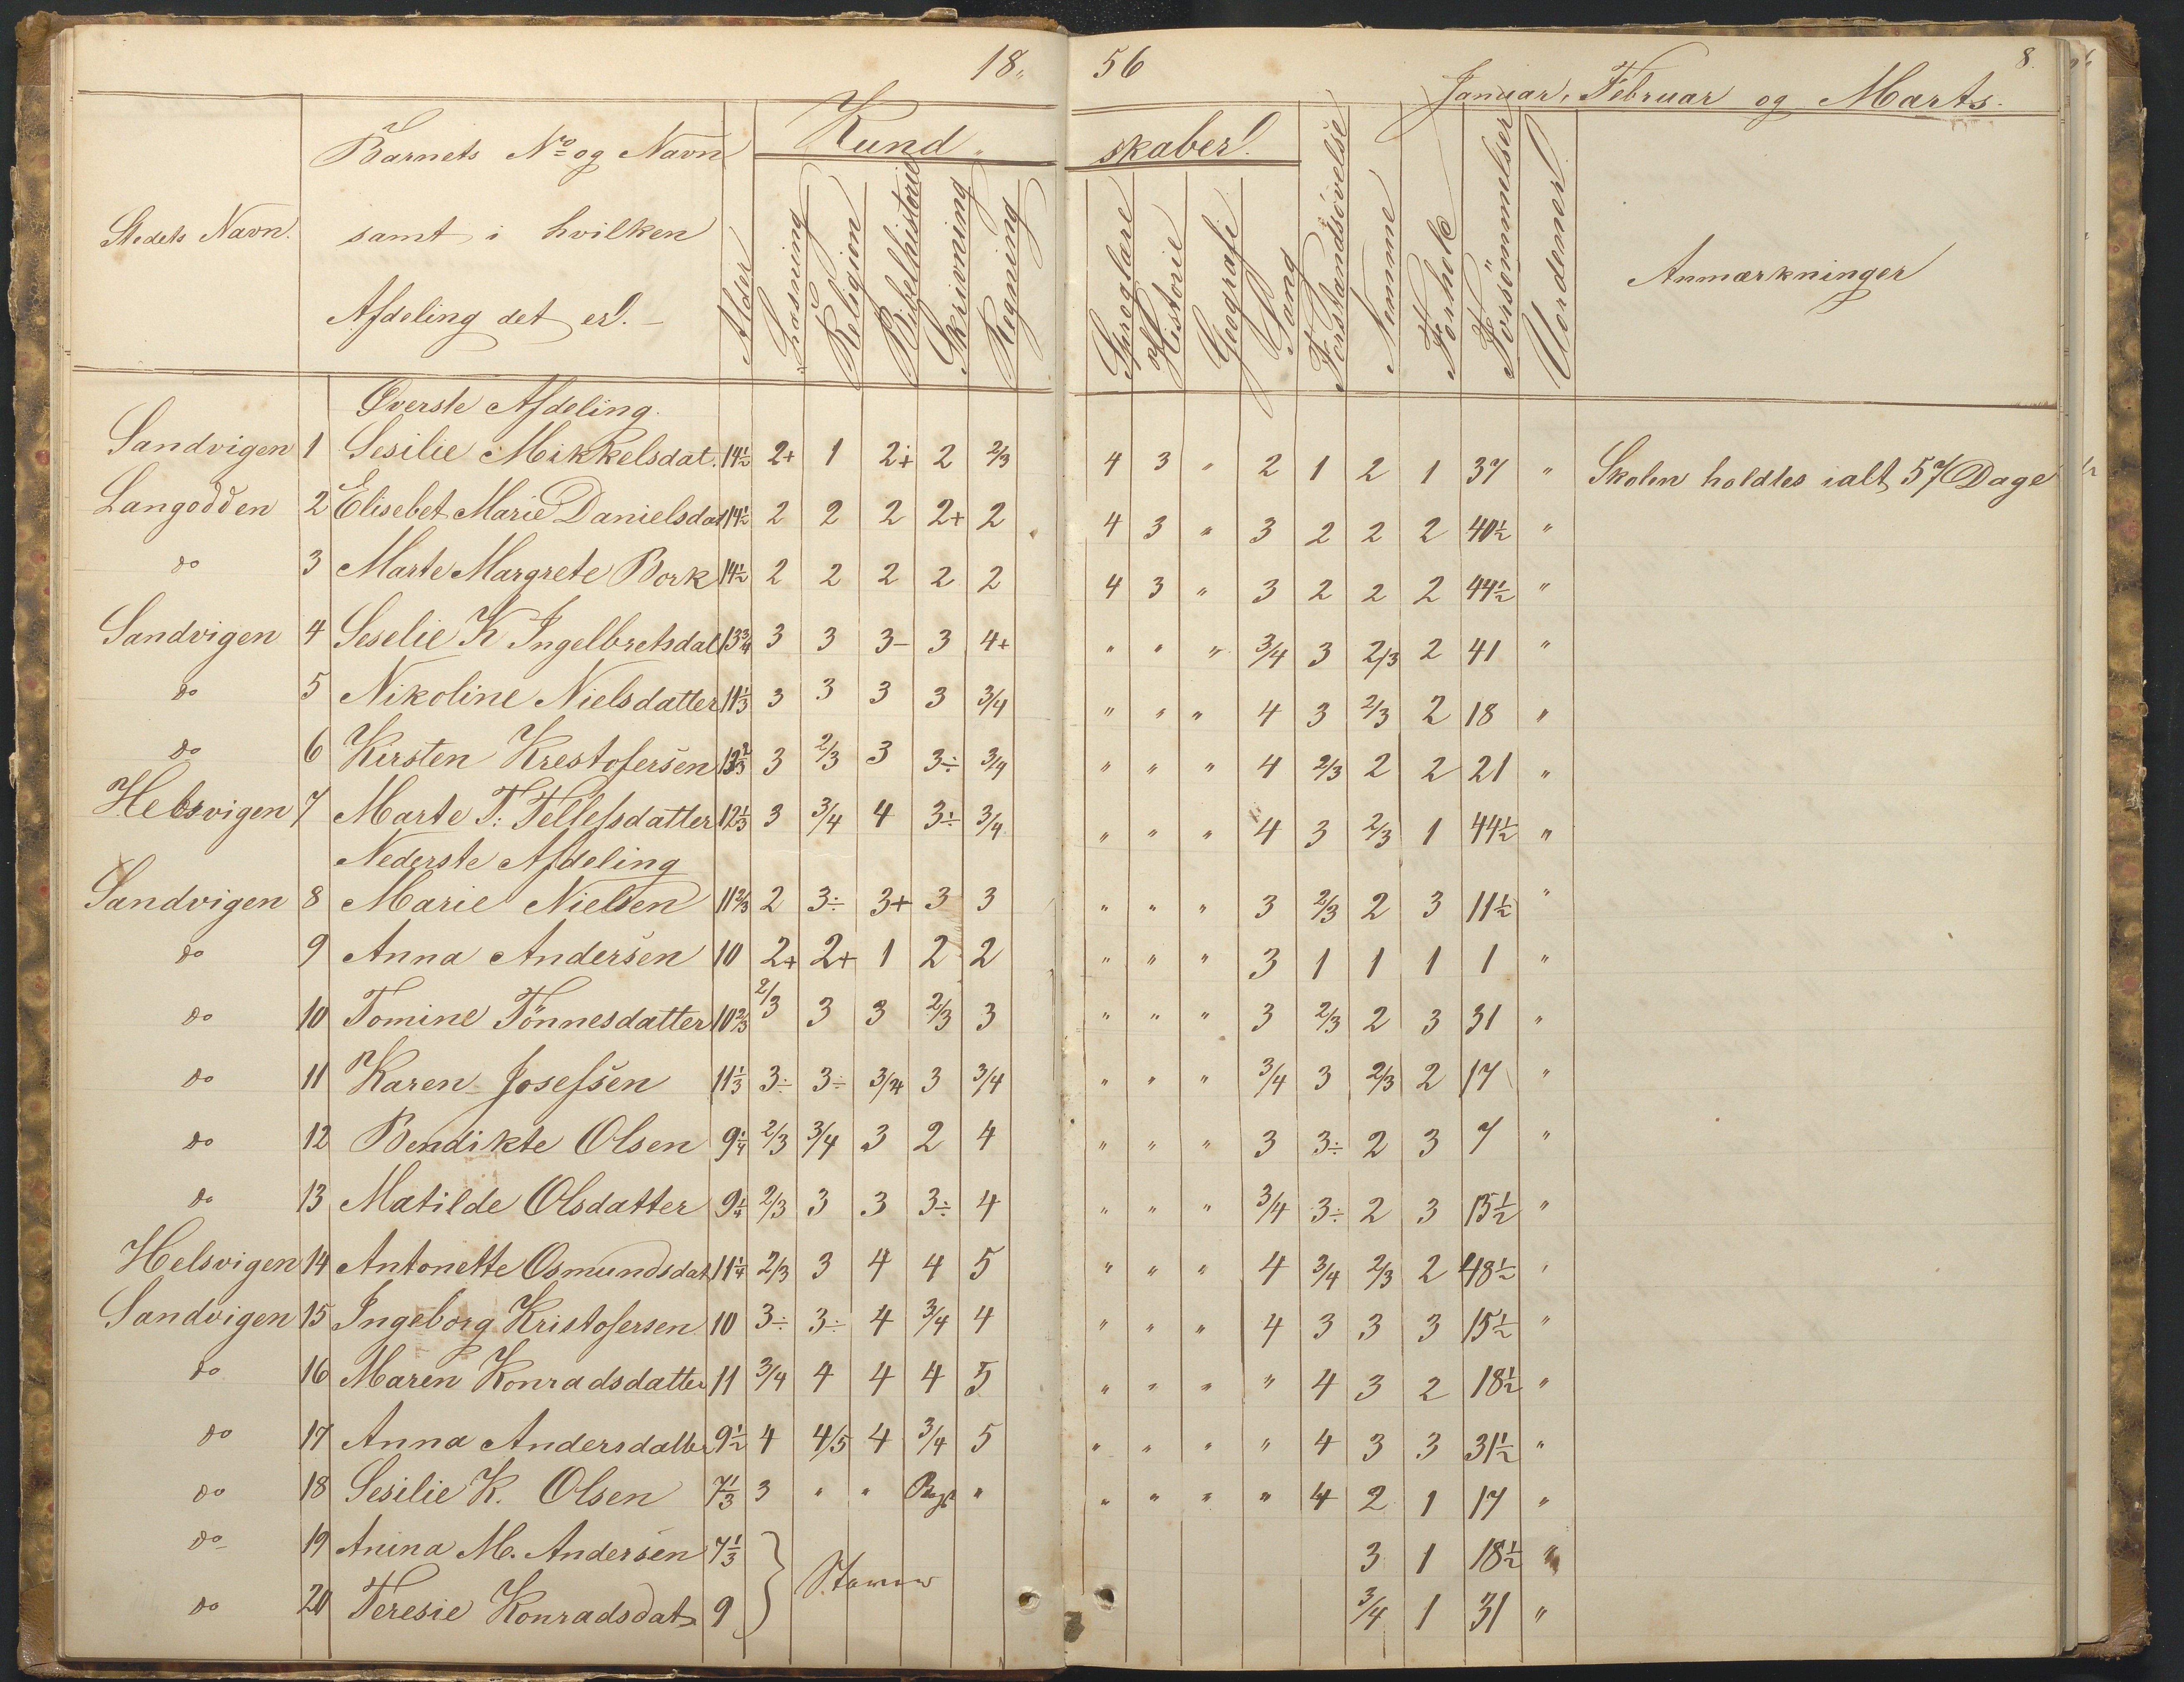 18„ 56 8.
Januar, Februar og Marts.
Stedets Navn.
Barnets No og Navn
samt i hvilken
Afdeling det er. –
Alder
Kund- skaber.
Læsning
Religion
Bibelhistorie
Skrivning
Regning
Sproglære
Historie
Geografi
Sang
Forstandsøvelse
Nemme
Forhold
Forsömmelser
Uordener
Anmærkninger
Øverste Afdeling.
Sandvigen 1 Sesilie Mikkelsdat. 14½ 2+ 1 2+ 2 2/3 4 3 „ 2 1 2 1 37 „ Skolen holdtes ialt 57 Dage
Langodden 2 Elisebet Marie Danielsdat 14½ 2 2 2 2+ 2 4 3 „ 3 2 2 2 40½ „
do 3 Marte Margrete Bork 14½ 2 2 2 2 2 4 3 „ 3 2 2 2 44½ „
Sandvigen 4 Seselie K Ingelbretsdat 13¾ 3 3 3– 3 4+ „ „ „ 3/4 3 2/3 2 41 „
do 5 Nikoline Nielsdatter 11⅓ 3 3 3 3 3/4 „ „ „ 4 3 2/3 2 18 „
do 6 Kirsten Krestofersen 3 2/3 3 3÷ 3/4 „ „ „ 4 2/3 2 2 21 „
Helsvigen 7 Marte T. Tellefsdatter 12⅓ 3 3/4 4 3÷ 3/4 „ „ „ 4 3 2/3 1 44½ „
Nederste Afdeling
Sandvigen 8 Marie Nielsen 11⅔ 2 3÷ 3+ 3 3 „ „ „ 3 2/3 2 3 11½ „
do 9 Anna Andersen 10 2+ 2+ 1 2 2 „ „ „ 3 1 1 1 1 „
do 10 Tomine Tönnesdatter 10⅔ 2/3 3 3 2/3 3 „ „ „ 3 2/3 2 3 31 „
do 11 Karen Josefsen 11⅓ 3÷ 3÷ 3/4 3 3/4 „ „ „ 3/4 3 2/3 2 17 „
do 12 Bendikte Olsen 9¼ 2/3 3/4 3 2 4 „ „ „ 3 3÷ 2 3 7 „
do 13 Matilde Olsdatter 9¼ 2/3 3 3 3÷ 4 „ „ „ 3/4 3÷ 2 3 15½ „
Helsvigen 14 Antonette Osmundsdat 11¼ 2/3 3 4 4 5 „ „ „ 4 3/4 2/3 2 48½ „
Sandvigen 15 Ingeborg Kristofersen 10 3÷ 3÷ 4 3/4 4 „ „ „ 4 3 3 3 15½ „
do 16 Maren Konradsdatter 11 3/4 4 4 4 5 „ „ „ „ 4 3 2 18½ „
do 17 Anna Andersdatter 9½ 4 4/5 4 3/4 5 „ „ „ „ 4 3 3 31½ „
do 18 Sesilie K. Olsen 7⅓ 3 „ „ „ „ „ „ „ 4 2 1 17 „
do 19 Anina M. Andersen 7⅓ 3 1 18½ „
do 20 Teresie Konradsdat 9 3/4 1 31 „